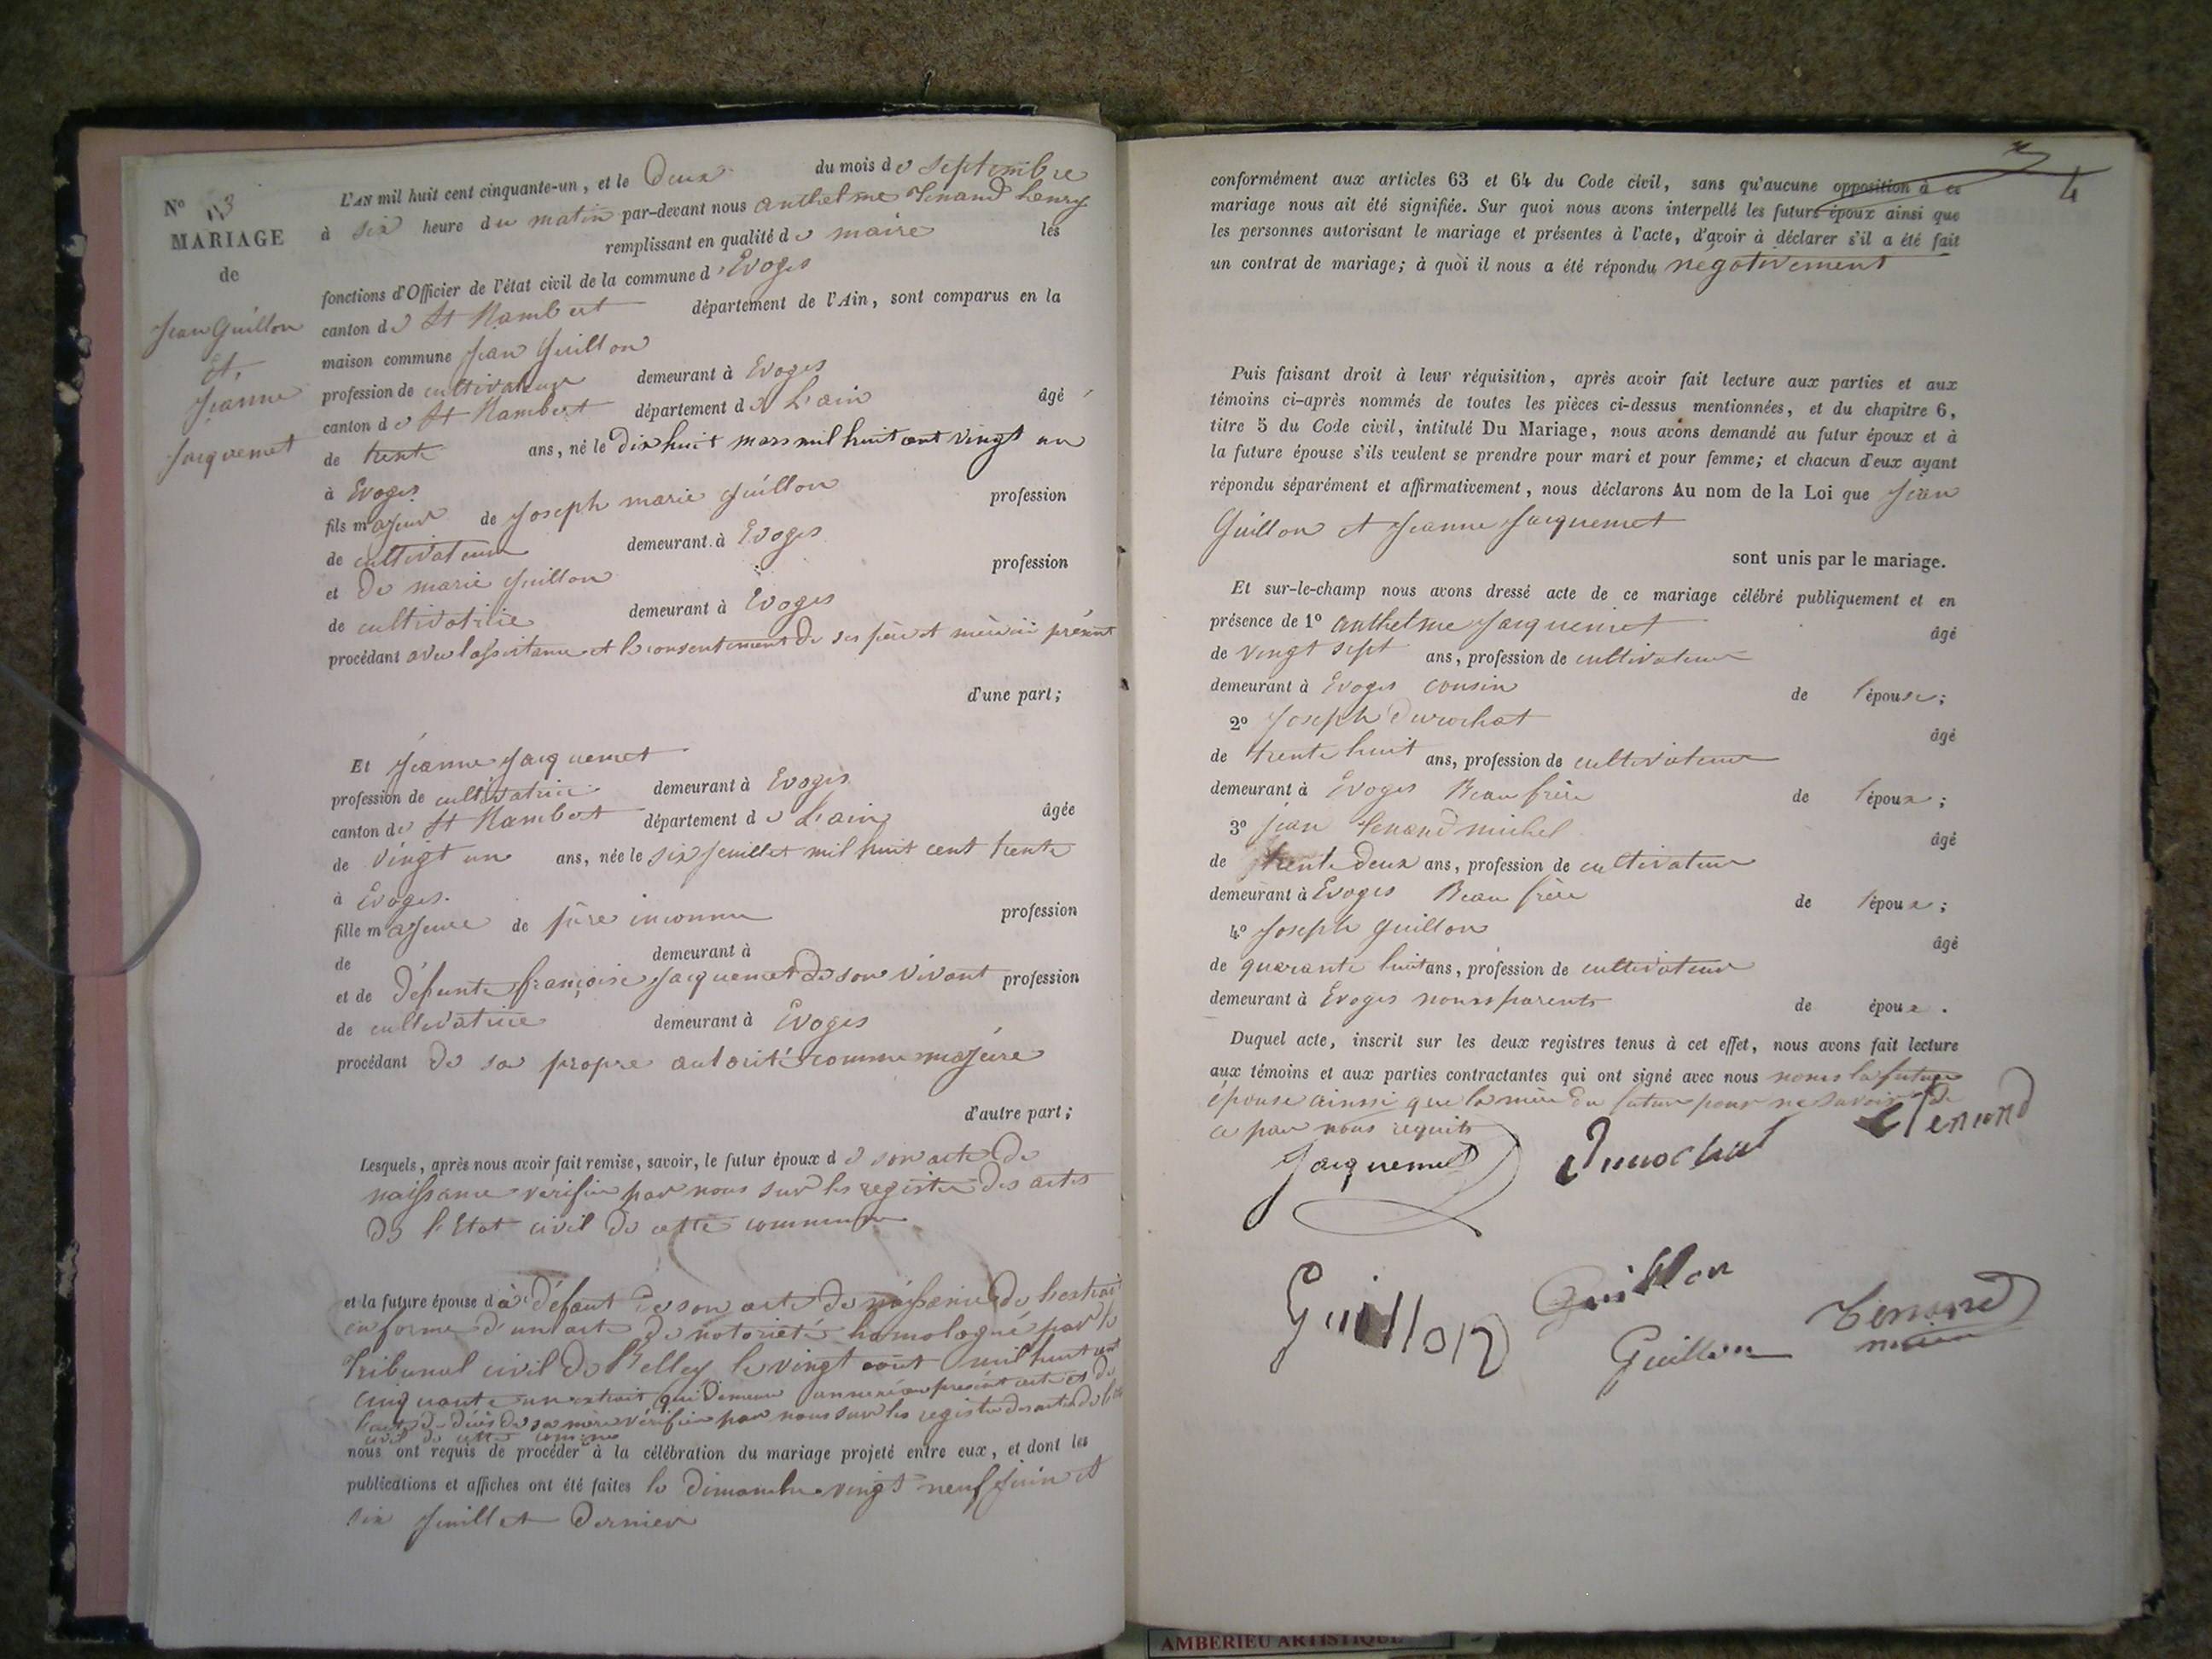 N° 3
MARIAGE
de
Jean Guillon
et
Jeanne
Jacquemet
L'AN mil huit cent cinquante-un, et le Deux du mois de Septembre
à six heure du matin par-devant nous anthelme Tenand
remplissant en qualité de maire les
fonctions d'Officier de l'état civil de la commune d'Evoges
canton de St Rambert département de l'Ain, sont comparus en la
maison commune Jean Guillon
profession de cultivateur demeurant à Evoges
canton de St Rambert département de L'ain âgé
de trente ans, né le dix huit mars mil huit cent vingt un
à Evoges
fils majeur de Joseph marie Guillon profession
de cultivateur demeurant à Evoges
et De marie Guillon profession
de cultivatrice demeurant à Evoges
procédant avec lassistance et le consentement de ses père et mère ici présent
d'une part;
Et Jeanne Jacquemet
profession de cultivatrice demeurant à Evoges
canton de St Rambert département de L'ain âgée
de vingt un ans, née le six Juillet mil huit cent trente
à Evoges.
fille majeure de père inconnu profession
de demeurant à
et de Défunte françoise Jacquemet de son vivant profession
de cultivatrice demeurant à Evoges
procédant de sa propre autorité comme majeure
d'autre part;
Lesquels, après nous avoir fait remise, savoir, le futur époux de son acte de
naissance vérifié par nous sur les registre des actes
de l'Etat civil de cette commune
et la future épouse d à défaut de son acte de naissance de l'extrait
en forme d'un acte de notoriété homologué par le
Tribunal civil de Belley le vingt août mil huit cent
cinquante un extrait qui demeure annexé au présent acte et de
l'acte de décès de sa mère vérifié par nous sur les registre des actes de l'état
civil de cette commune
nous ont requis de procéder à la célébration du mariage projeté entre eux, et dont les
publications et affiches ont été faites le dimanche vingt neuf Juin et
six Juillet Dernier
4
conformément aux articles 63 et 64 du Code civil, sans qu'aucune opposition à ce
mariage nous ait été signifiée. Sur quoi nous avons interpellé les futurs époux ainsi que
les personnes autorisant le mariage et présentes à l'acte, d'avoir à déclarer s'il a été fait
un contrat de mariage; à quoi il nous a été répondu négativement
Puis faisant droit à leur réquisition, après avoir fait lecture aux parties et aux
témoins ci-après nommés de toutes les pièces ci-dessus mentionnées, et du chapitre 6,
titre 5 du Code civil, intitulé Du Mariage, nous avons demandé au futur époux et à
la future épouse s'ils veulent se prendre pour mari et pour femme; et chacun d'eux ayant
répondu séparément et affirmativement, nous déclarons Au nom de la Loi que Jean
Guillon et Jeanne Jacquemet
sont unis par le mariage.
Et sur-le-champ nous avons dressé acte de ce mariage célébré publiquement et en
présence de 1° anthelme Jacquemet âgé
de vingt sept ans, profession de cultivateur
demeurant à Evoges cousin de l'épouse;
2° Joseph Durochat âgé
de trente huit ans, profession de cultivateur
demeurant à Evoges Beau frère de l'époux;
3° Jean Tenand michel âgé
de trente Deux ans, profession de cultivateur
demeurant à Evoges Beau frère de l'époux;
4° Joseph Guillon âgé
de quarante huit ans, profession de cultivateur
demeurant à Evoges nonsparents de époux.
Duquel acte, inscrit sur les deux registres tenus à cet effet, nous avons fait lecture
aux témoins et aux parties contractantes qui ont signé avec nous nonss la future
épouse ainssi que la mère du futur pour ne savoir de
ce par nous requits
Jacquemet Durochat Tenand
Guillon Guillon
Guillon Tenand
maire
AMBERIEU ARTISTIQUE